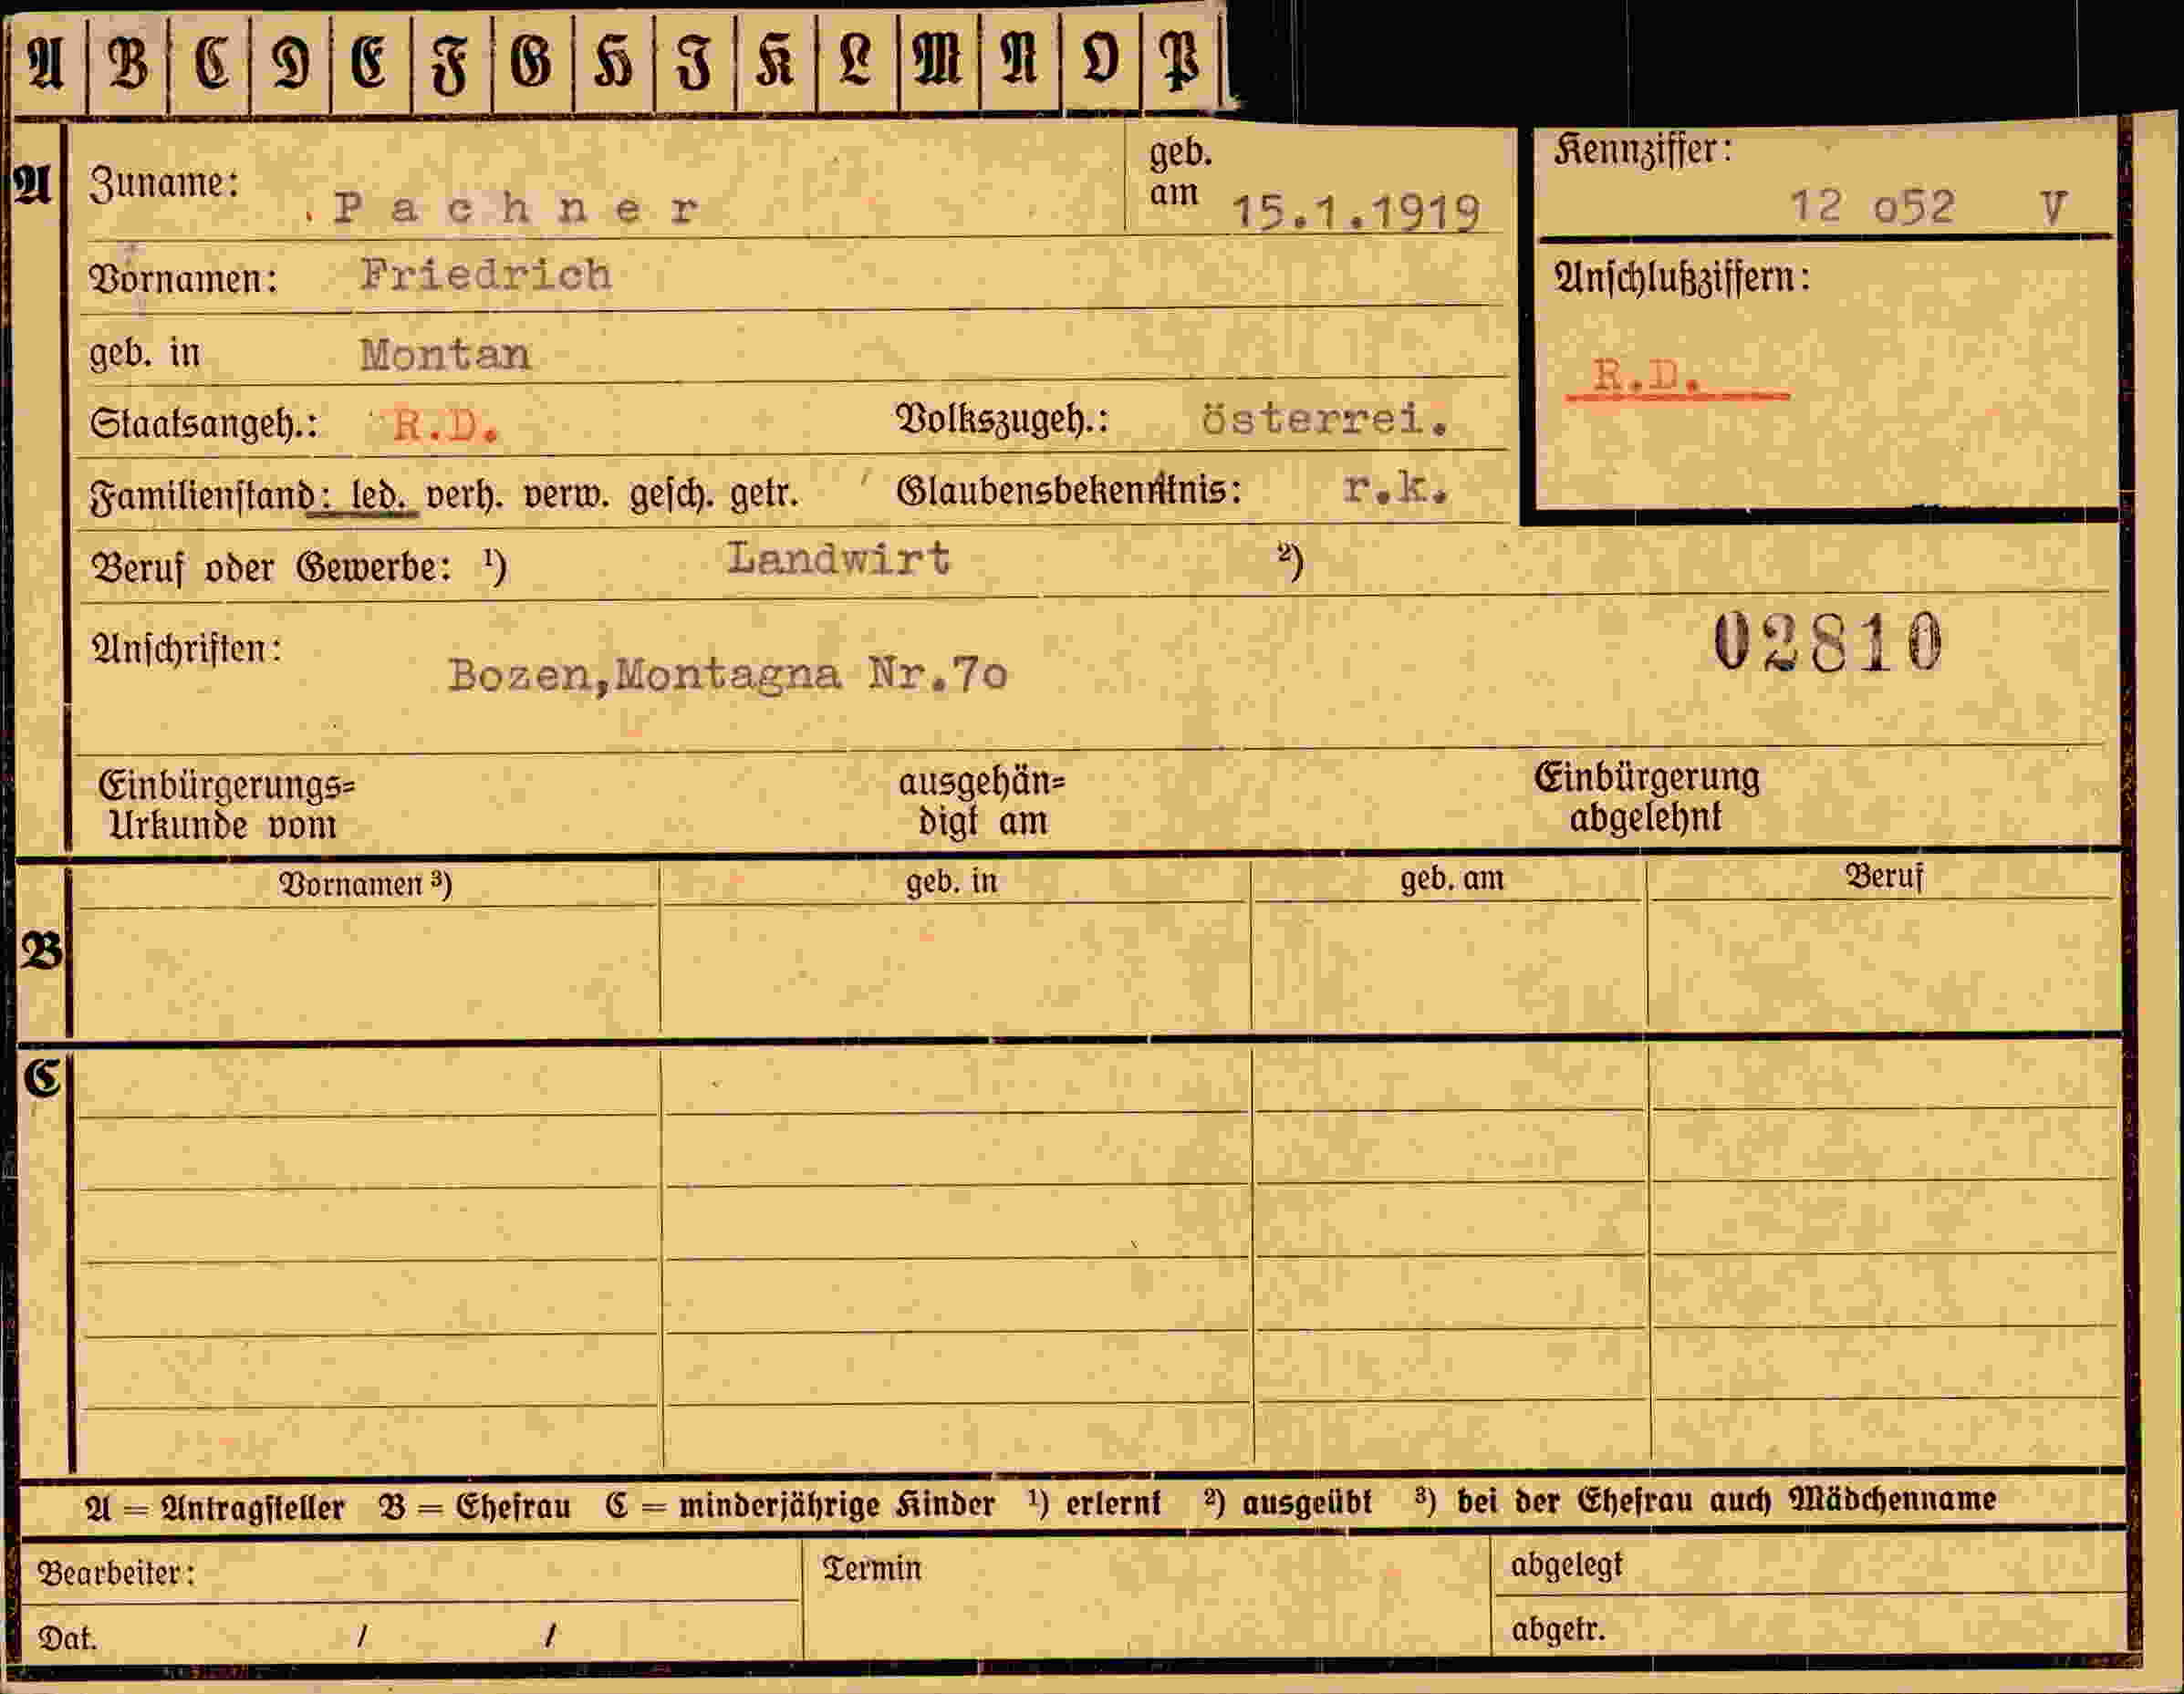 A B C D E F G H I K L M N O P
A Zuname: P a c h n e r geb. am 15.1.1919
Kennziffer: 12 o52 V
Vornamen: Friedrich
Anschlußziffern:
geb. in Montan
R.D.
Staatsangeh.: R.D. Volkszugeh.: österrei.
Familienstand: led. verh. verw. gesch. getr. Glaubensbekenntnis: r.k.
Beruf oder Gewerbe: ¹) Landwirt ²)
02810
Anschriften: Bozen,Montagna Nr.7o
Einbürgerungs= ausgehän= Einbürgerung
Urkunde vom digt am abgelehnt
Vornamen ³) geb. in geb. am Beruf
B
C
A = Antragsteller B = Ehefrau C = minderjährige Kinder ¹) erlernt ²) ausgeübt ³) bei der Ehefrau auch Mädchenname
Bearbeiter: Termin abgelegt
Dat. / / abgetr.